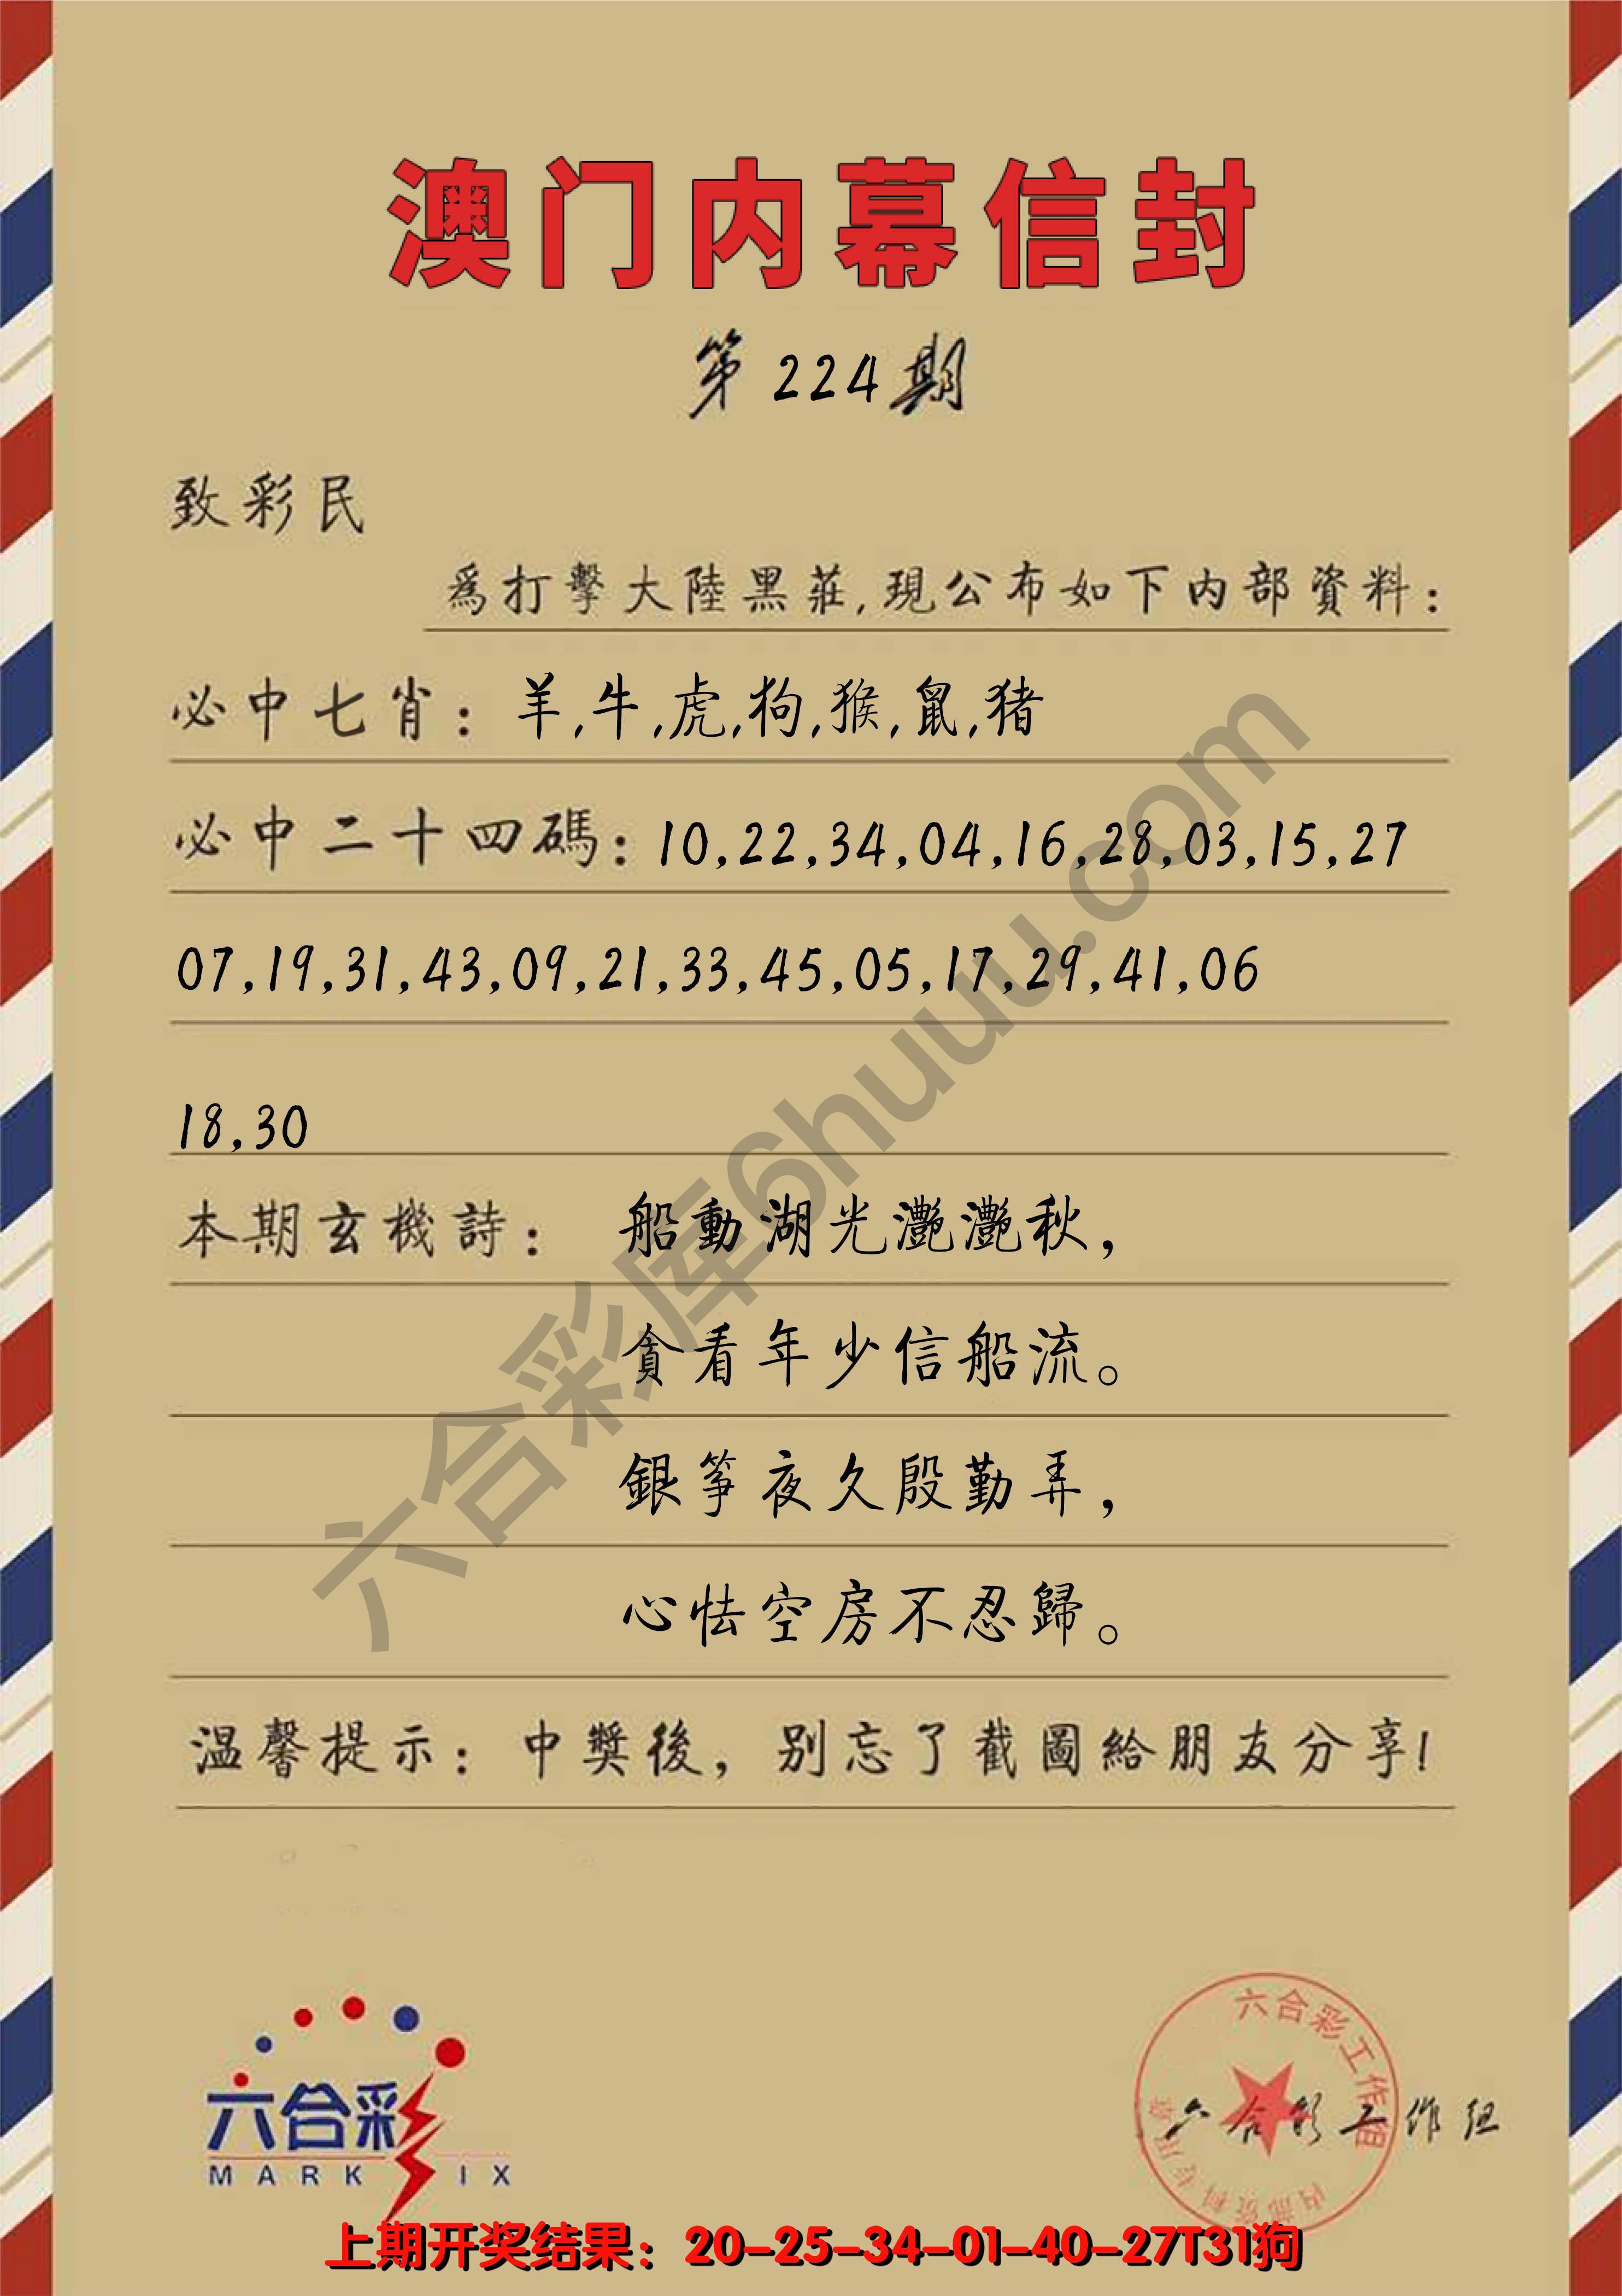 澳门内幕信封
第224期
致彩民
為打擊大陸黑莊,現公布如下内部資料:
必中七肖: 羊,牛,虎,狗,猴,鼠,猪
必中二十四碼: 10,22,34,04,16,28,03,15,27
07,19,31,43,09,21,33,45,05,17,29,41,06
18,30
本期玄機詩: 船動湖光灔灔秋,
貪看年少信船流。
銀筝夜久殷勤弄,
心怯空房不忍歸。
温馨提示: 中獎後,别忘了截圖給朋友分享!
六合彩库6huuu.com
六合彩
MARK IX
六合彩工作组
内部资料专用章
六合彩工作组
上期开奖结果: 20-25-34-01-40-27T31狗